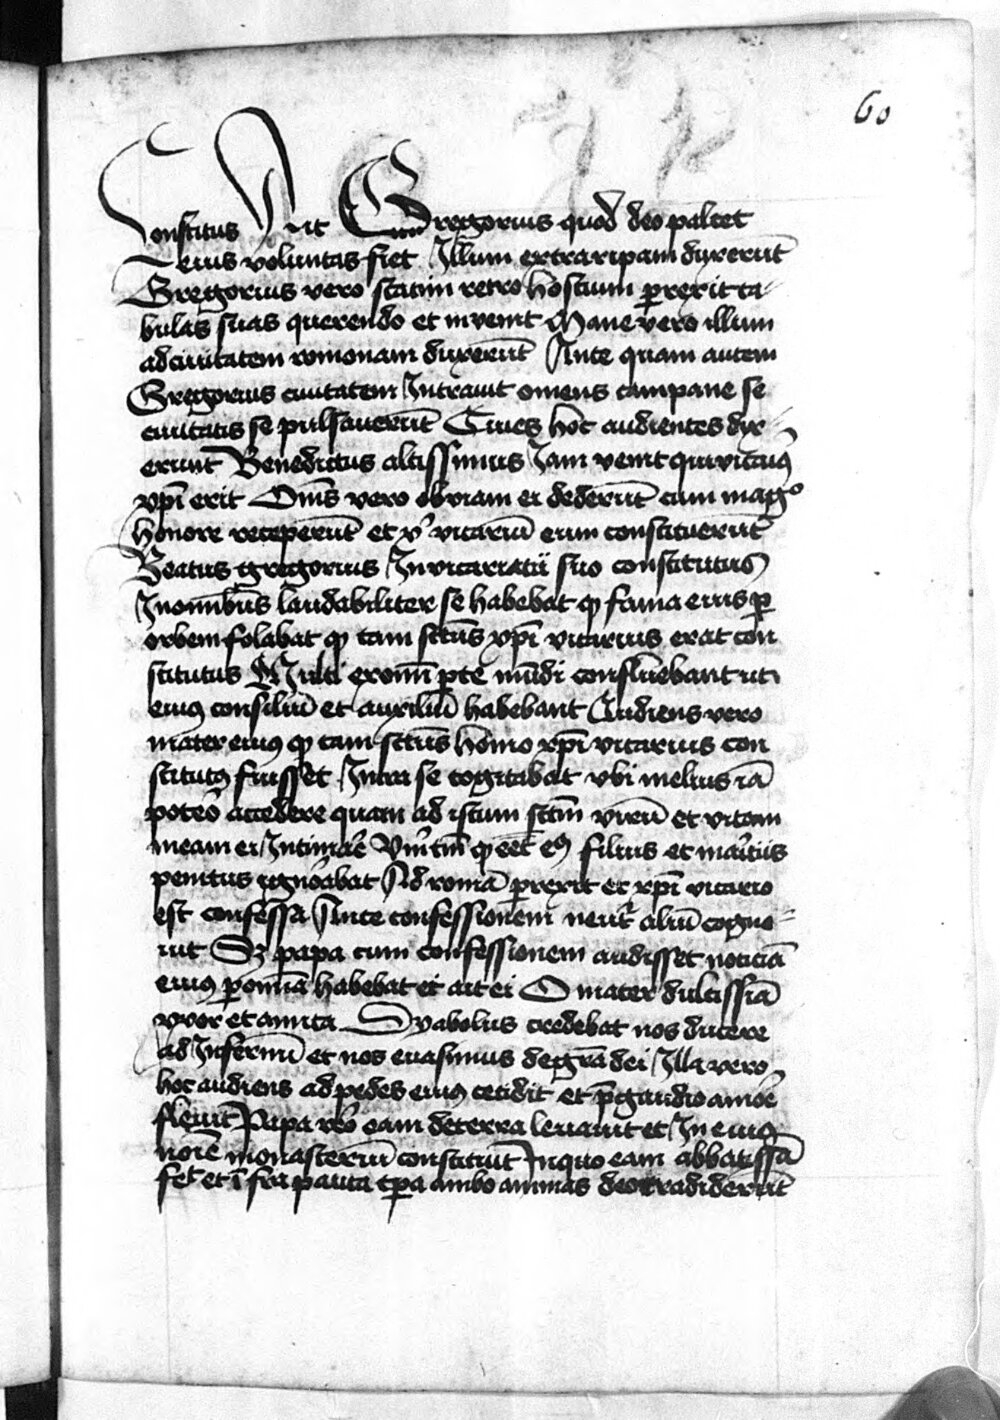 60
Constitus Ait Cui Gregorius quod deo placet
eius voluntas fiet Illum extra ripam duxerūt
Gregorius vero statim retro hostium perrexit ta-
bulas suas querendo et invenit Mane vero illum
ad civitatem romonam duxerūt Ante quam autem
Gregorius civitatem Intravit omens campane se
civitatis se pulsaverūt Cives hoc audientes dix-
erunt Benedictus altissimus Jam venit qui vicariꝰ
xp̄i erit Om̄s vero obviam ei dederūt cum magᵒ
honore receperūt et xp̄i vicariū eum constituerūt
Beatus gregorius In vicarratū suo constitutus
In omībus laudabiliter se habebat qꝫ fama eius ꝑ
orbem folabat qꝫ tam sctūs xp̄i vicarius erat con
stitutus Multi ex omī ꝑte mūdi confluebant ut
eiuꝰ consiliū et auxiliū habebant Audiens vero
mater eiuꝰ qꝫ tam sctūs homo xp̄i vicarius con
stitutꝰ fuisset Intra se cogitabat vbi melius iā
potero accedere quam ad istum sctm̄ virū et vitam
meam ei Intimare Verūtm̄ qꝫ eēt eꝰ filius et maritus
penitus ignorabat Ad romā perrexit et xp̄i vicario
est confessa Ante confessionem neut̄ aliū cogno-
vit Sꝫ papa cum confessionem audisset noticiā
eiuꝰ ꝑ omīa habebat et ait ei O mater dulcissīa
vxor et amita Dyabolus credebat nos ducere
ad Infernū et nos evasimus de gr̄a dei Illa vero
hoc audiens ad pedes eiuꝰ cecidit et p̄ gaudio amare
flevit Papa v̄o eam de terra levavit et In eiuꝰ
noīe monasteriū constituit In quo eam abbatissā
fec̄ et īfra pauca tꝑa ambo animas deo tradiderūt